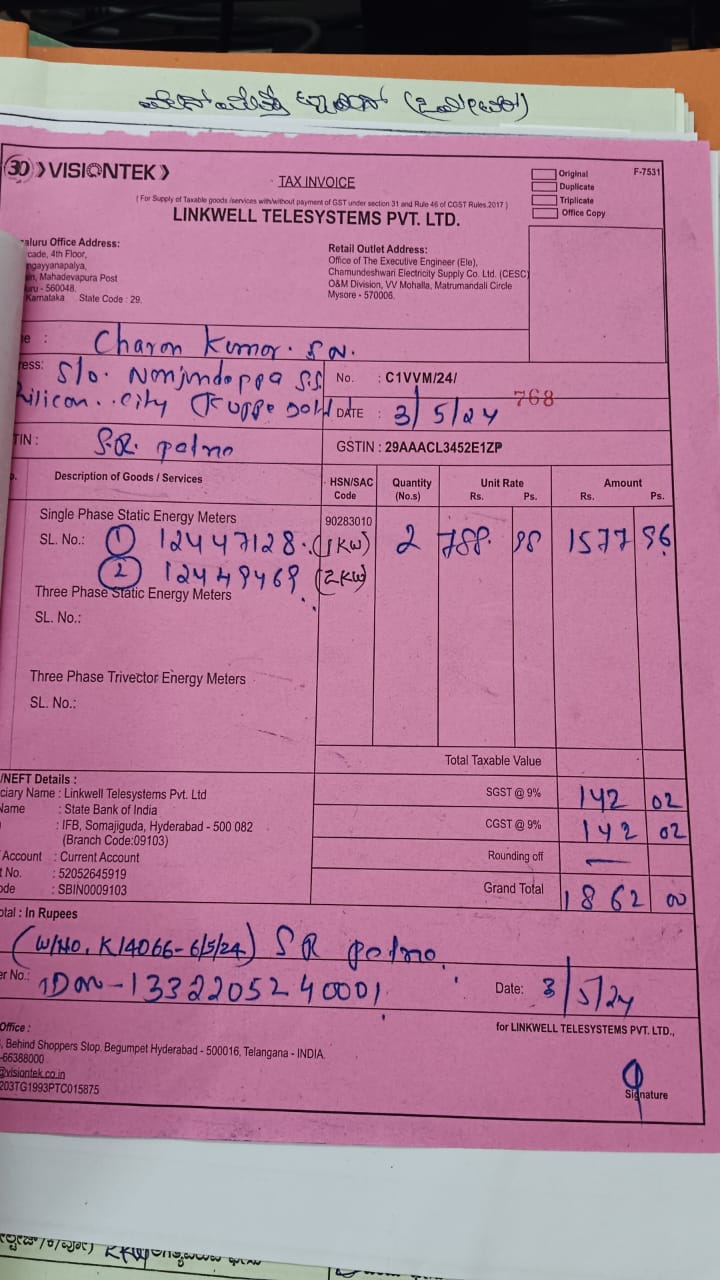 30 VISIONTEK
TAX INVOICE
F-7531
Original
Duplicate
Triplicate
Office Copy
( For Supply of Taxable goods /services with/without payment of GST under section 31 and Rule 46 of CGST Rules.2017 )
LINKWELL TELESYSTEMS PVT. LTD.
aluru Office Address:
cade, 4th Floor,
ngayyanapalya,
in, Mahadevapura Post
uru - 560048.
Karnataka State Code : 29.
Retail Outlet Address:
Office of The Executive Engineer (Ele),
Chamundeshwari Electricity Supply Co. Ltd. (CESC)
O&M Division, VV Mohalla, Matrumandali Circle
Mysore - 570006.
e : Charan Kumar. S N.
ress: S/o. Nanjundappa S.S
Silicon..City
No. : C1VVM/24/ 768
DATE : 3/5/24
TIN : S.R.
GSTIN : 29AAACL3452E1ZP
Description of Goods / Services HSN/SAC Code Quantity (No.s) Unit Rate Rs. Ps. Amount Rs. Ps.
Single Phase Static Energy Meters 90283010
SL. No.: ① 12447128.(1KW) 2 788. 98 1577 96
② 12449469 (2KW)
Three Phase Static Energy Meters
SL. No.:
Three Phase Trivector Energy Meters
SL. No.:
Total Taxable Value
/NEFT Details :
ciary Name : Linkwell Telesystems Pvt. Ltd
Name : State Bank of India
: IFB, Somajiguda, Hyderabad - 500 082
(Branch Code:09103)
Account : Current Account
t No. : 52052645919
ode : SBIN0009103
SGST @ 9% 142 02
CGST @ 9% 142 02
Rounding off —
Grand Total 1862 00
otal : In Rupees
(W/NO. K14066-6/5/24) S R
er No.: 1332205240001
Date: 3/5/24
Office :
, Behind Shoppers Stop, Begumpet Hyderabad - 500016, Telangana - INDIA.
-66388000
@visiontek.co.in
203TG1993PTC015875
for LINKWELL TELESYSTEMS PVT. LTD.,
Signature